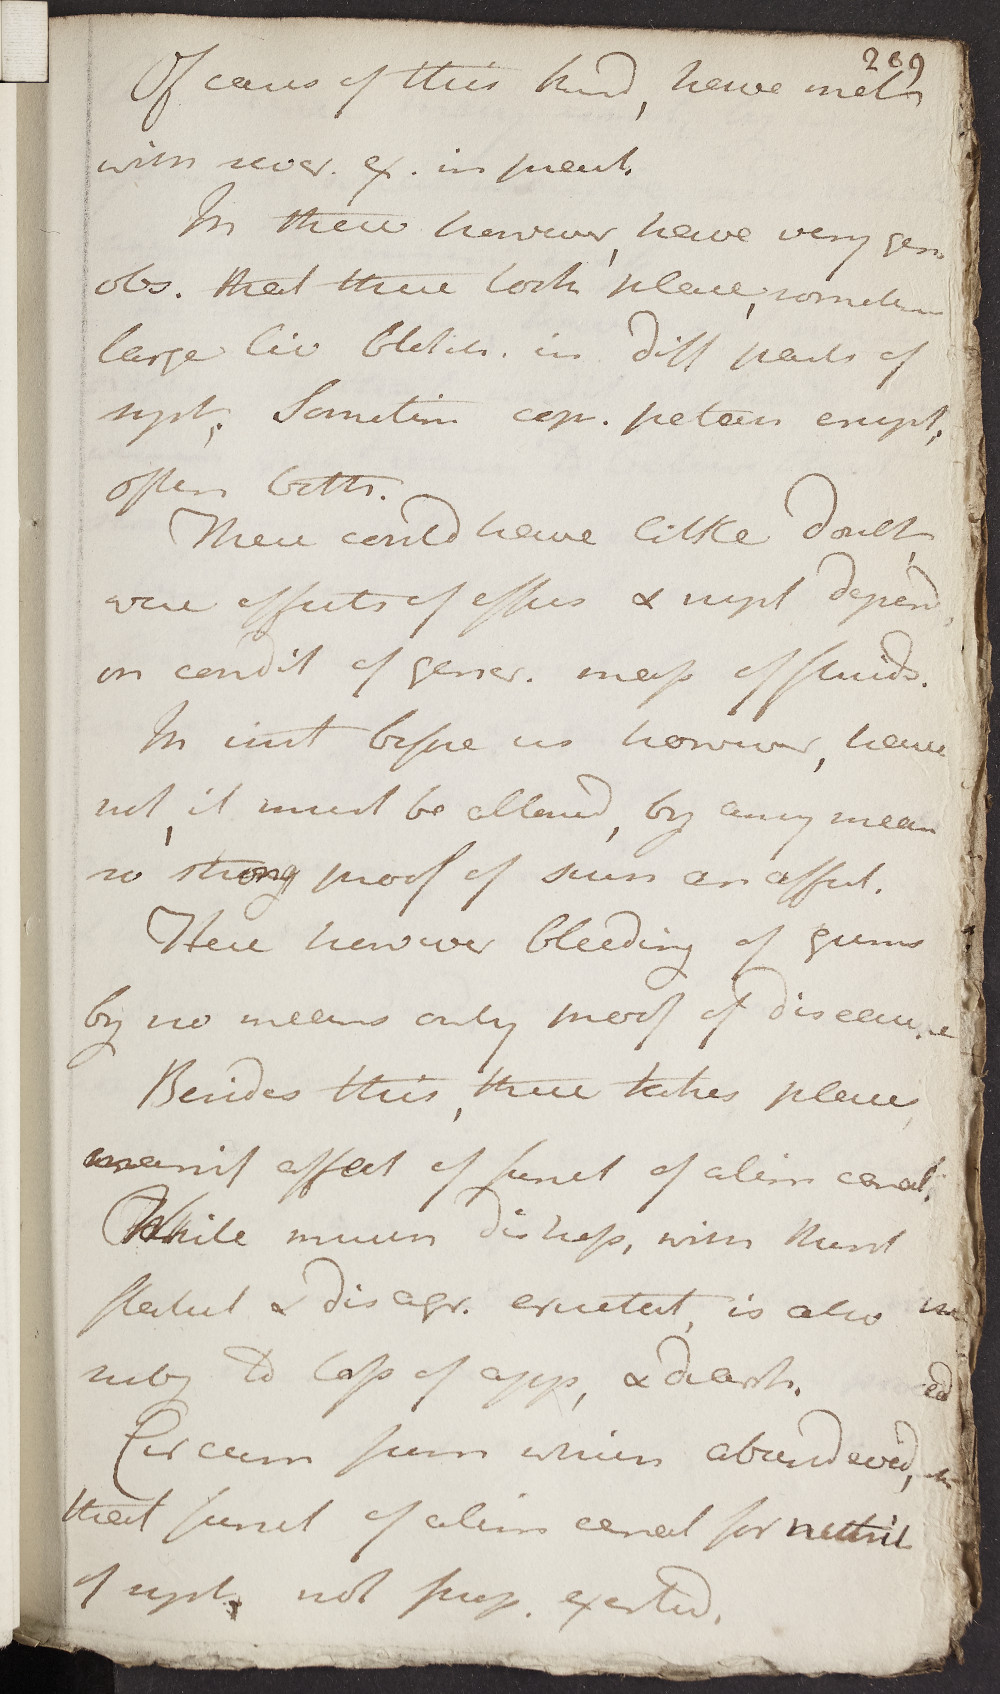 269
Of cases of this kind, have met
with sever. ex. in pract.
In these however, have very gen
obs. that there took place, sometim
large liv blotch. in diff parts of
syst, Sometim cop. petech erupt,
often both.
These could have little doubt,
were effects of effus & rupt depend,
on condit of gener. mass of fluids.
In inst before us however, have
not, it must be allowed, by any mean
so strong proof of such an affect.
Here however bleeding of gums
by no means only proof of disease
Besides this, there takes place,
manif affect of funct of alim canal.
While much distress, with thirst
flatul & disagr. eructat, is also
subj to loss of app, & diarrh.
Circum from which abund evid,
that funct of alim canal for nutrit
of syst, not prop. exerted.